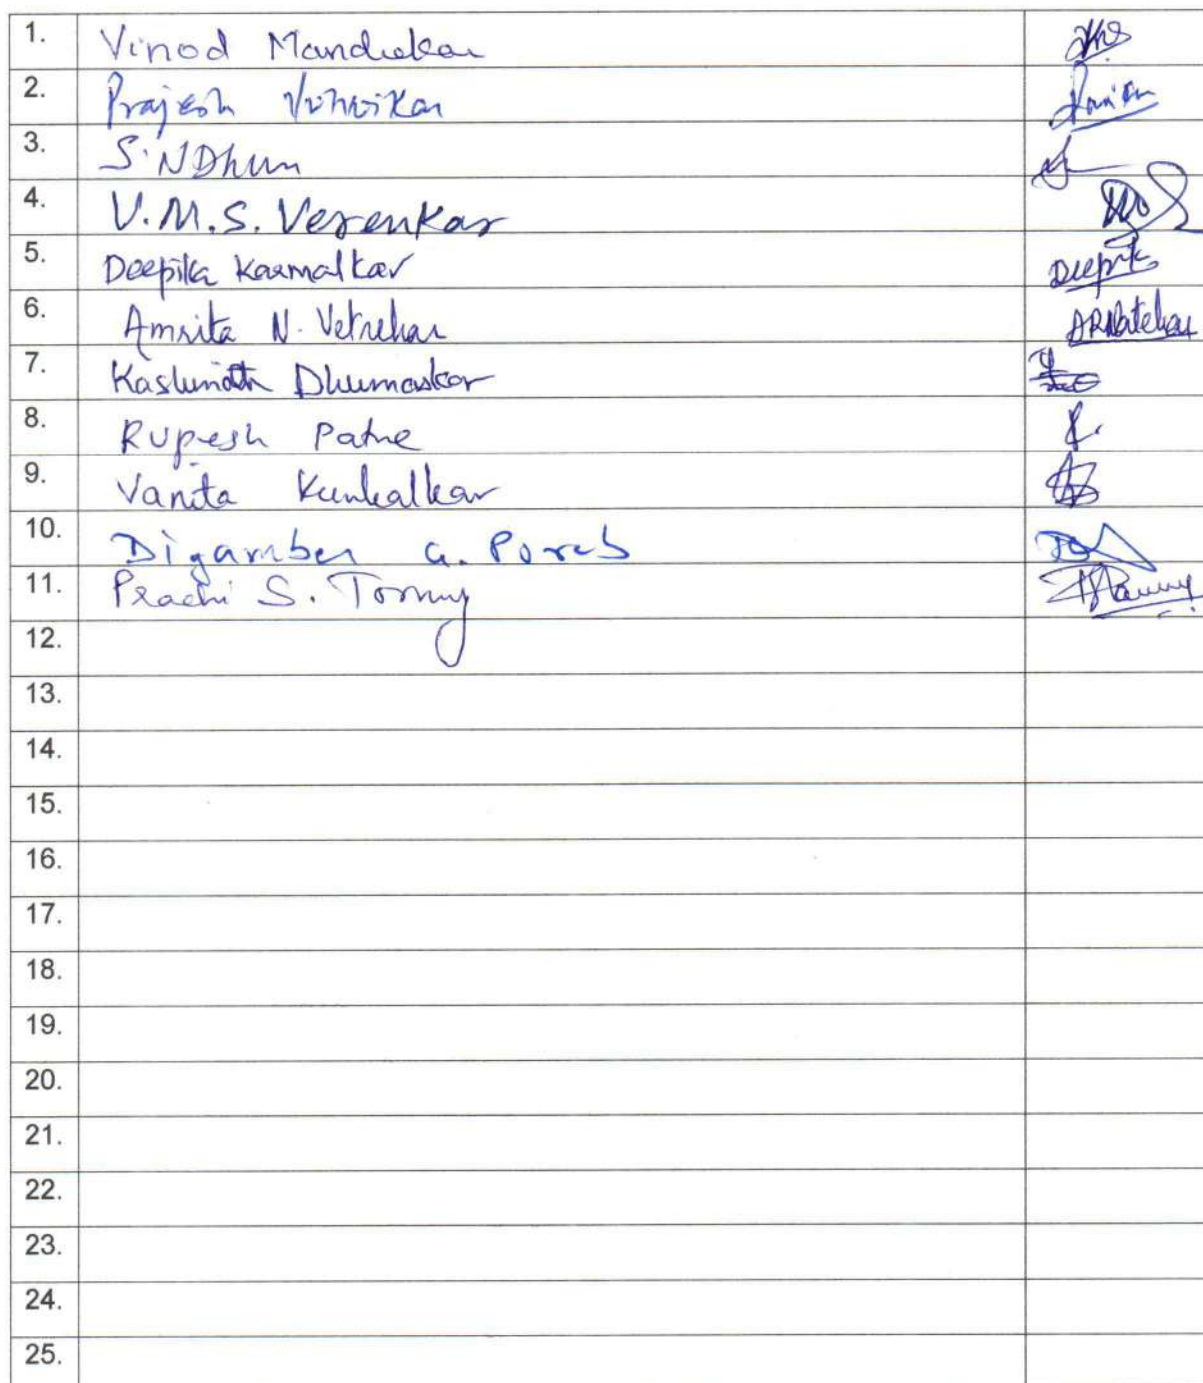 1. Vinod Mandrekar
2. Prajesh
3. SiNDhun
4. V.M.S. Verenkar
5. Deepika Karmalkar Deepika
6. Amrita N. Vetrekar
7. Kashinath Dhumaskar
8. Rupesh Patne
9. Vanita Kunkalkar
10. Digamber G. Porob
11. Prachi S. Torney
12.
13.
14.
15.
16.
17.
18.
19.
20.
21.
22.
23.
24.
25.